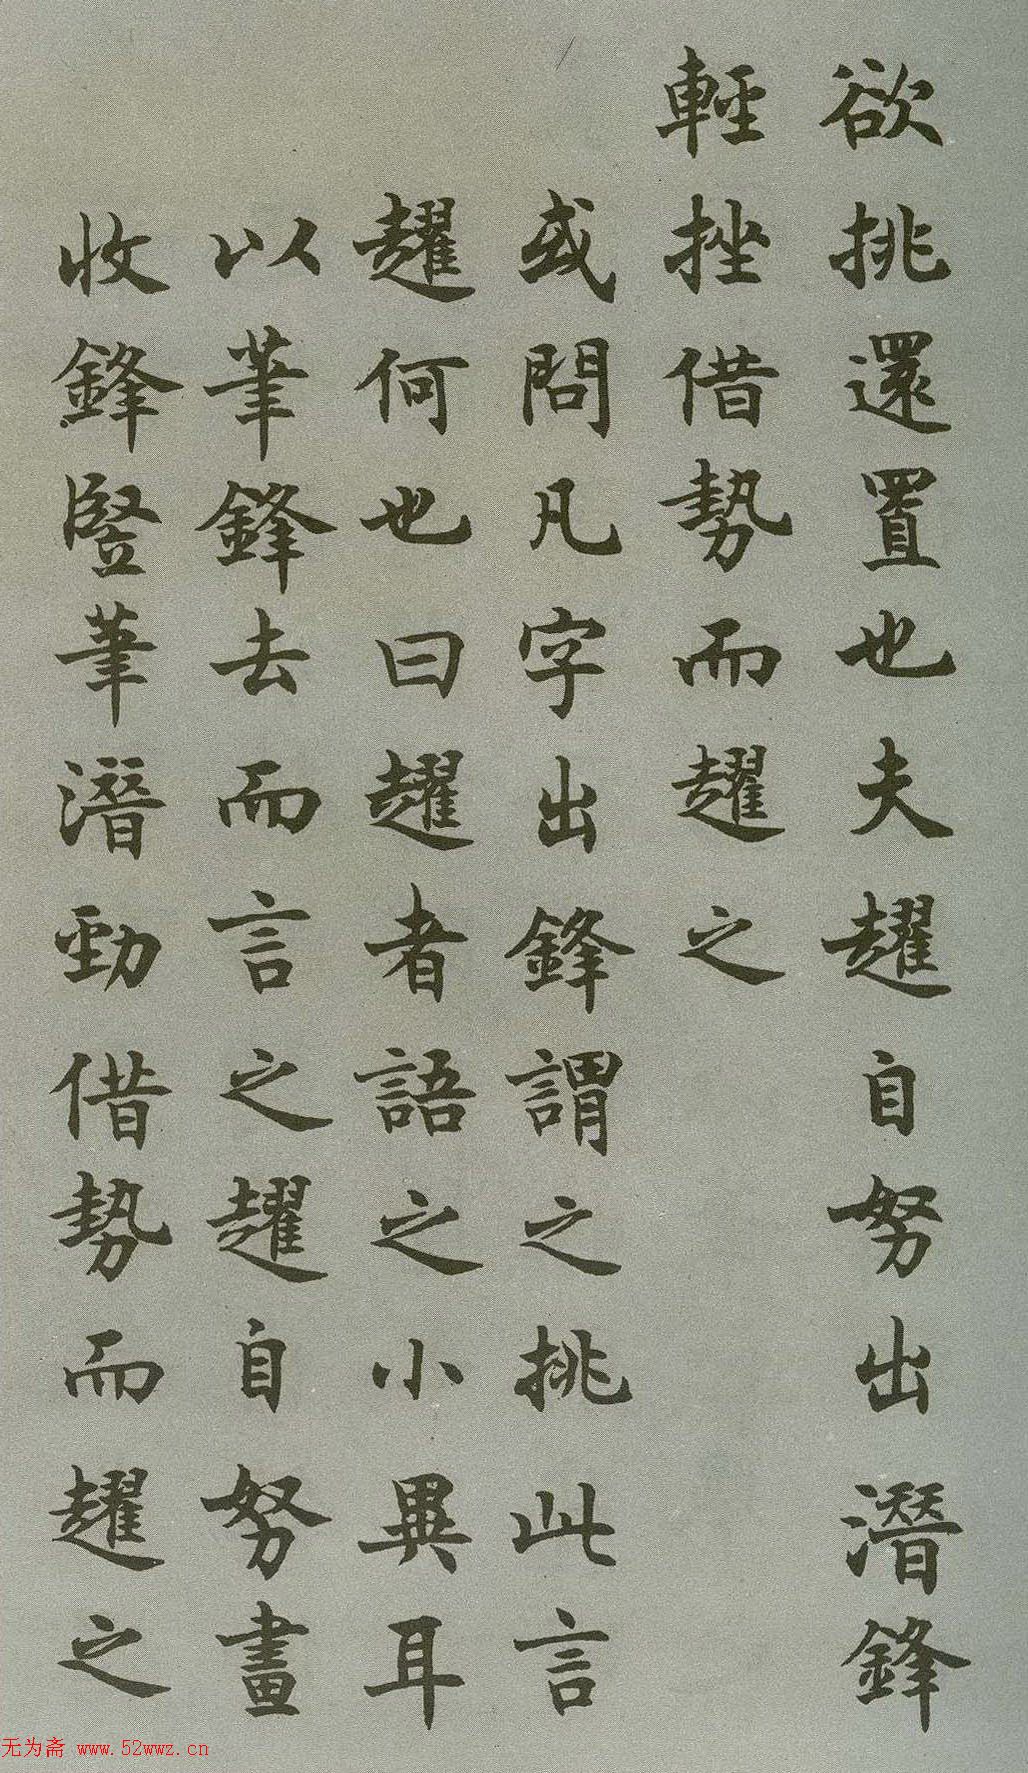 欲挑還置也夫趯自努出潛鋒
輕挫借勢而趯之
或問凡字出鋒謂之挑此言
趯何也曰趯者語之小異耳
以筆鋒去而言之趯自努畫
收鋒竪筆潛勁借勢而趯之
无为斋 www.52wwz.cn